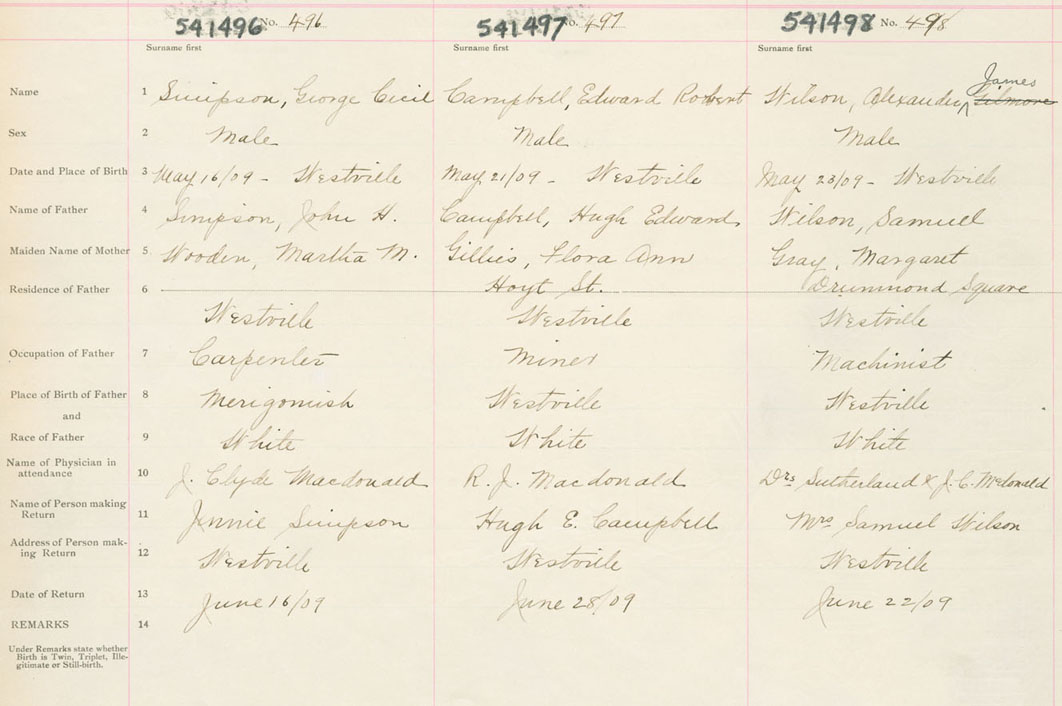 541496 No. 496 541497 No. 497 541498 No. 498
Surname first Surname first Surname first
James
Name 1 Simpson, George Cecil Campbell, Edward Robert Wilson, Alexander Gilmore
Sex 2 Male Male Male
Date and Place of Birth 3 May 16/09 - Westville May 21/09 - Westville May 23/09 - Westville
Name of Father 4 Simpson, John H. Campbell, Hugh Edward Wilson, Samuel
Maiden Name of Mother 5 Wooden, Martha M. Gillies, Flora Ann Gray, Margaret
Residence of Father 6 Hoyt St. Drummond Square
Westville Westville Westville
Occupation of Father 7 Carpenter Miner Machinist
Place of Birth of Father 8 Merigomish Westville Westville
and
Race of Father 9 White White White
Name of Physician in
attendance 10 J. Clyde Macdonald R. J. Macdonald Drs Sutherland & J. C. McDonald
Name of Person making
Return 11 Jennie Simpson Hugh E. Campbell Mrs Samuel Wilson
Address of Person mak-
ing Return 12 Westville Westville Westville
Date of Return 13 June 16/09 June 28/09 June 22/09
REMARKS 14
Under Remarks state whether
Birth is Twin, Triplet, Ille-
gitimate or Still-birth.